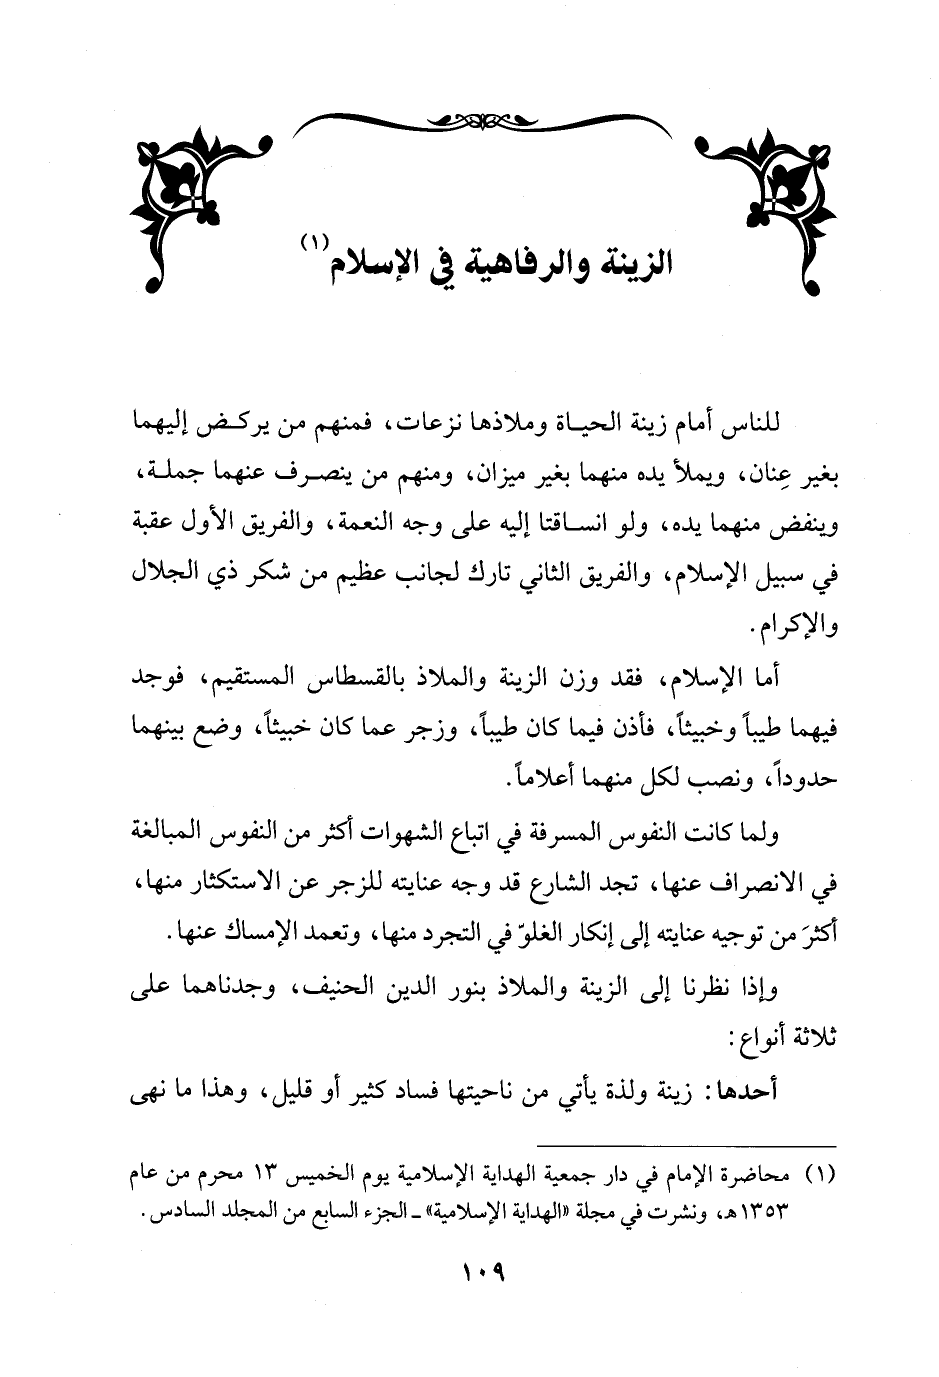 الزينة والرفاهية في الإسلام(١)
للناس أمام زينة الحياة وملاذها نزعات، فمنهم من يركض إليهما
بغير عِنان، ويملأ يده منهما بغير ميزان، ومنهم من ينصرف عنهما جملة،
وينفض منهما يده، ولو انساقتا إليه على وجه النعمة، والفريق الأول عقبة
في سبيل الإسلام، والفريق الثاني تارك لجانب عظيم من شكر ذي الجلال
والإكرام.
أما الإسلام، فقد وزن الزينة والملاذ بالقسطاس المستقيم، فوجد
فيهما طيباً وخبيثاً، فأذن فيما كان طيباً، وزجر عما كان خبيثاً، وضع بينهما
حدوداً، ونصب لكل منهما أعلاماً.
ولما كانت النفوس المسرفة في اتباع الشهوات أكثر من النفوس المبالغة
في الانصراف عنها، تجد الشارع قد وجه عنايته للزجر عن الاستكثار منها،
أكثرَ من توجيه عنايته إلى إنكار الغلوّ في التجرد منها، وتعمد الإمساك عنها.
وإذا نظرنا إلى الزينة والملاذ بنور الدين الحنيف، وجدناهما على
ثلاثة أنواع:
أحدها: زينة ولذة يأتي من ناحيتها فساد كثير أو قليل، وهذا ما نهى
(١) محاضرة الإمام في دار جمعية الهداية الإسلامية يوم الخميس ١٣ محرم من عام
١٣٥٣هـ، ونشرت في مجلة «الهداية الإسلامية» ـ الجزء السابع من المجلد السادس.
١٠٩